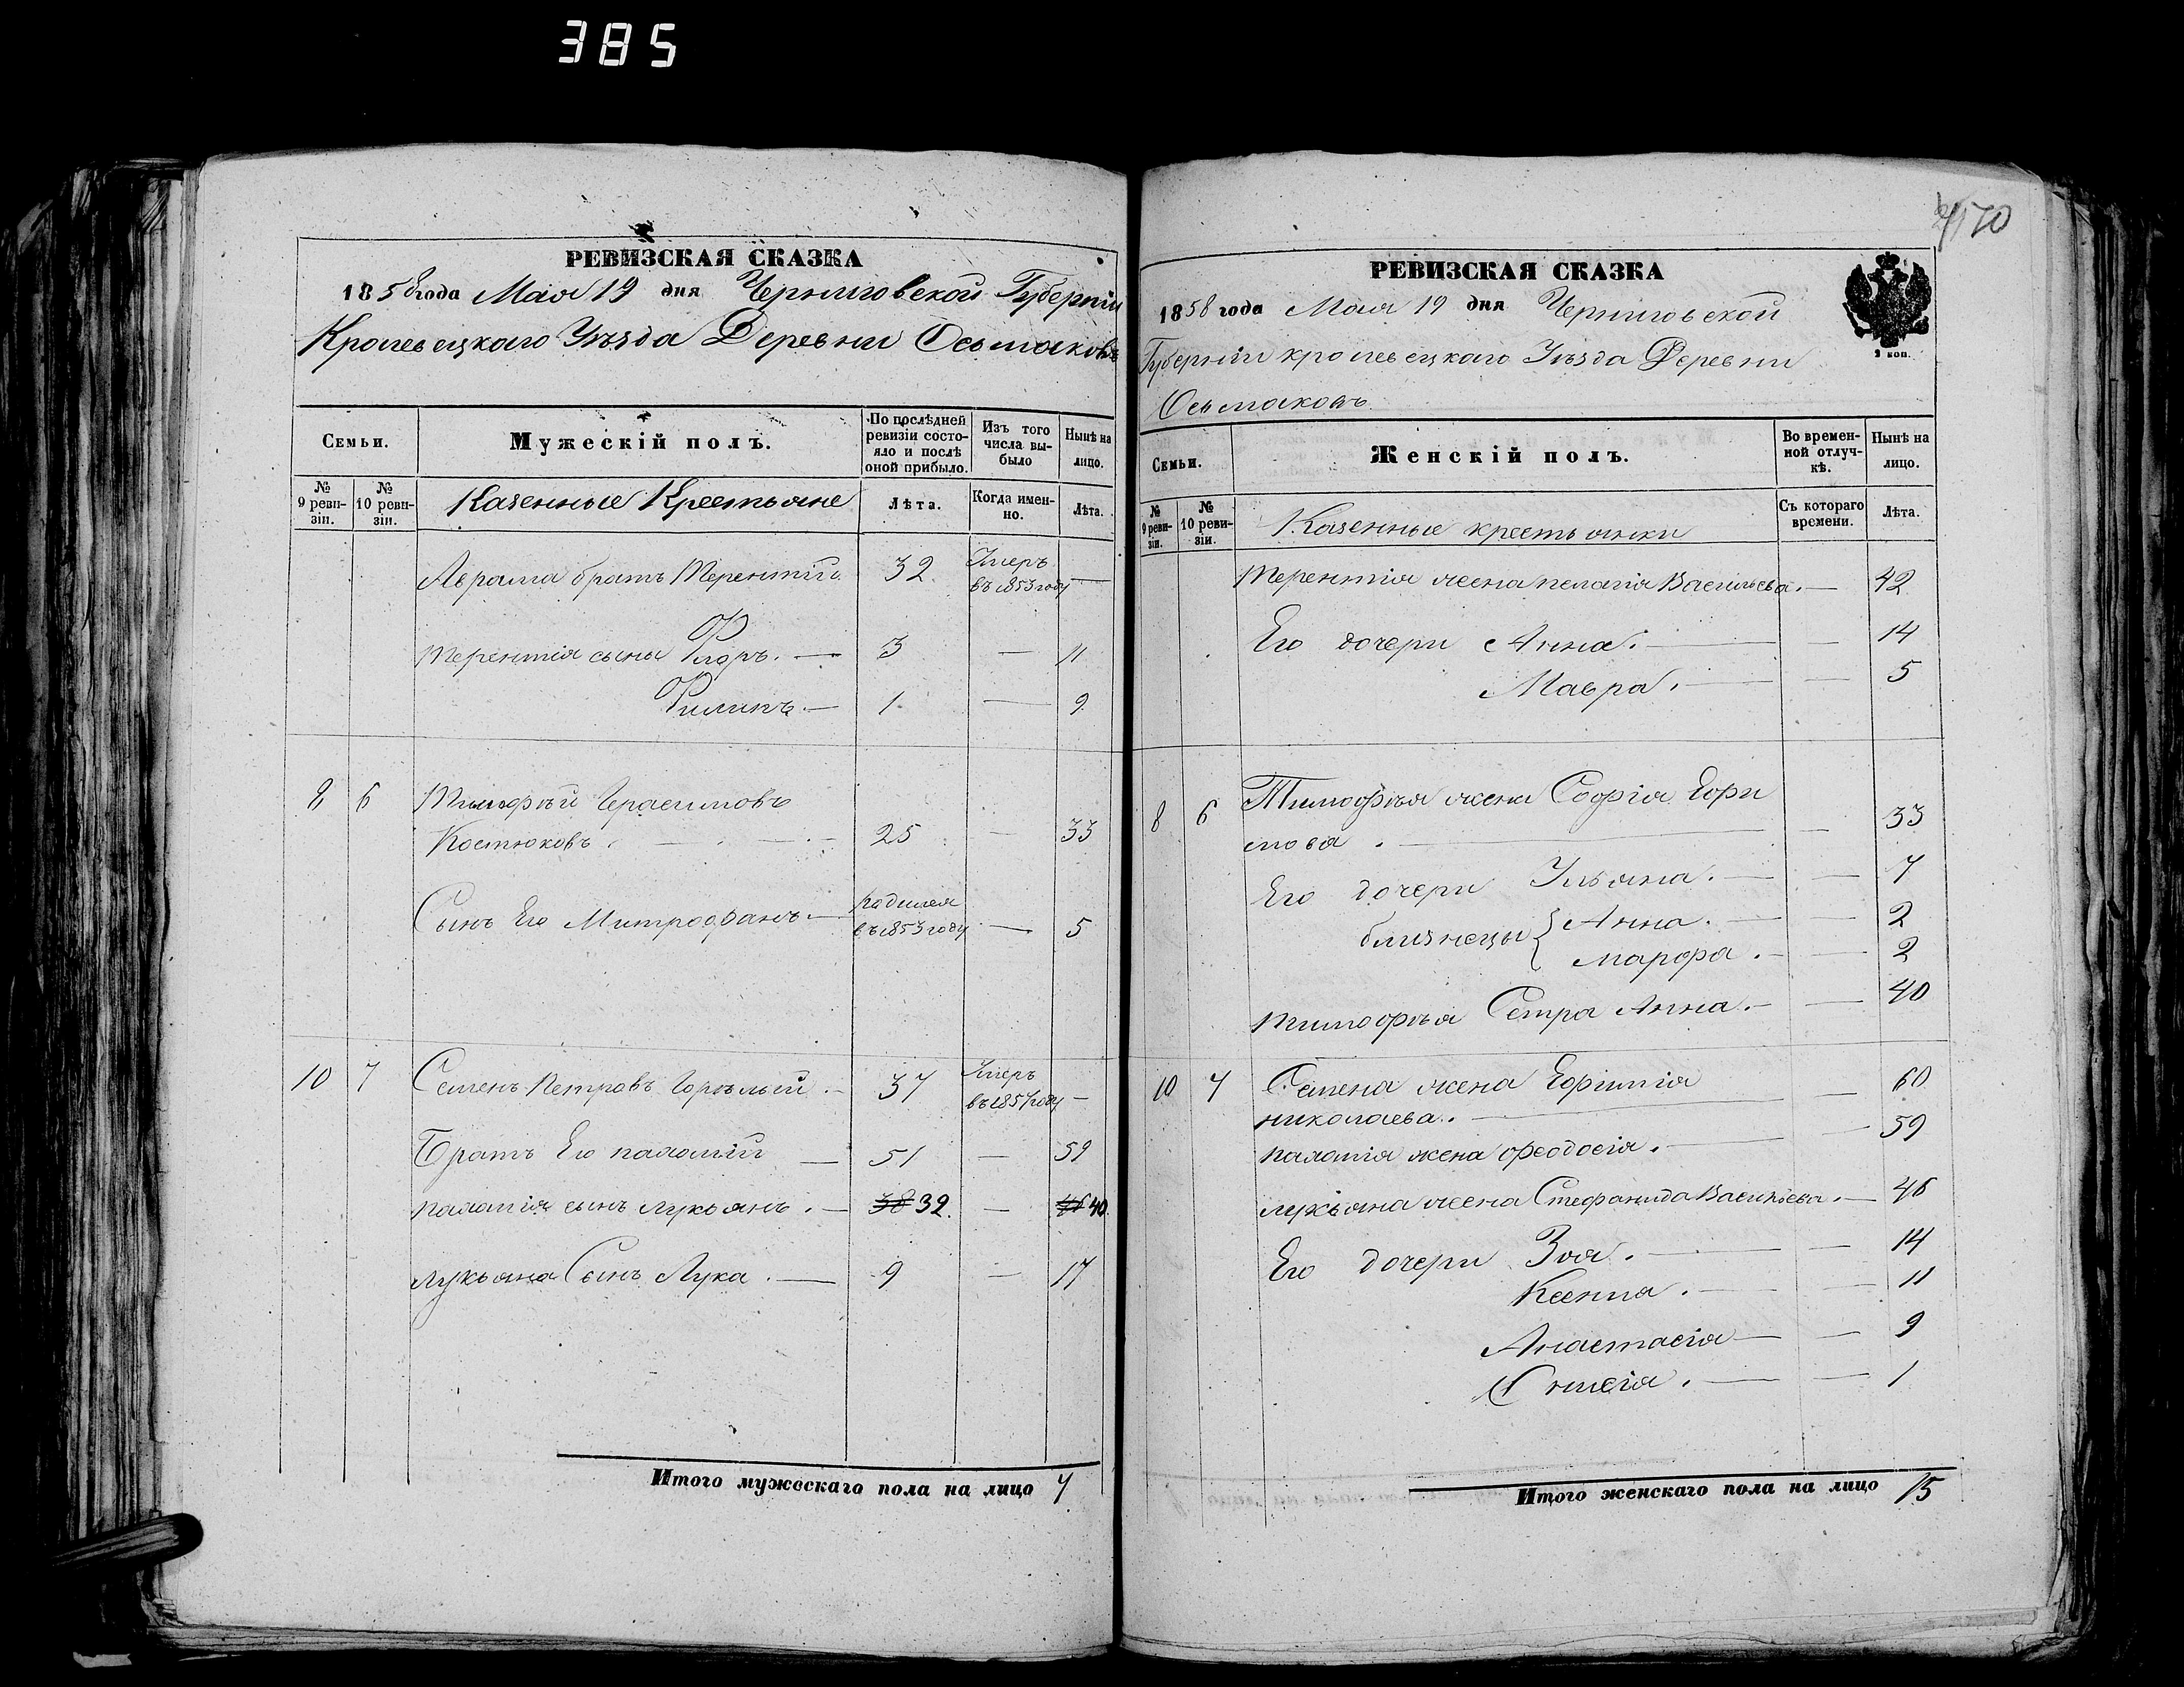 385
РЕВИЗСКАЯ СКАЗКА
1858 года Мая 19 дня Черниговской Губерніи
Кролевецкаго Уѣзда Деревни Осьмаковъ
Семьи.
Мужескій полъ.
По послѣдней ревизіи состояло и послѣ оной прибыло.
Изъ того числа выбыло
Нынѣ на лицо.
№ 9 ревизіи.
№ 10 ревизіи.
Казенные Крестьяне
Лѣта.
Когда именно.
Лѣта.
Аврама братъ Терентій 32 Умеръ въ 1853 году —
Терентія сыны Флоръ. — 3 — 11
Филипъ. — 1 — 9
8 6 Тимофѣй Герасимовъ
Костюковъ. 25 — 33
Сынъ Его Митрофанъ — родился въ 1853 году — 5
10 7 Семенъ Петровъ Горѣлый. — 37 Умеръ въ 1857 году —
Братъ Его палатій — 51 — 59
палатія сынъ лукьянъ. — 38 32. — 46 40.
лукьяна Сынъ Лука. — 9 — 17
Итого мужескаго пола на лицо 7
170
РЕВИЗСКАЯ СКАЗКА
1858 года Мая 19 дня Черниговской
Губерніи кролевецкаго Уѣзда Деревни
Осьмаковъ
2 коп.
Семьи.
Женскій полъ.
Во временной отлучкѣ.
Нынѣ на лицо.
№ 9 ревизіи.
№ 10 ревизіи.
Казенные крестьянки
Съ котораго времени.
Лѣта.
Терентія жена пелагія Васильева. — 42
Его дочери Анна. — — 14
Мавра. — — 5
8 6 Тимофѣя жена Софія Ефи
мова. — — 33
Его дочери Ульяна. — — 7
близнецы { Анна. — — 2
марфа. — — 2
тимофѣя Сетра Анна. — — 40
10 7 Семена жена Ефимія
николаева. — — 60
палатія жена феодосія. — — 59
лукьяна жена Стефанида Васильева. — 46
Его дочери Зоя. — — 14
Ксенія. — — 11
Анастасія — — 9
— — 1
Итого женскаго пола на лицо 15